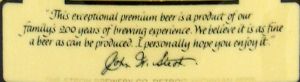 "This exceptional premium beer is a product of our
family's 200 years of brewing experience. We believe it is as fine
a beer as can be produced. I personally hope you enjoy it."